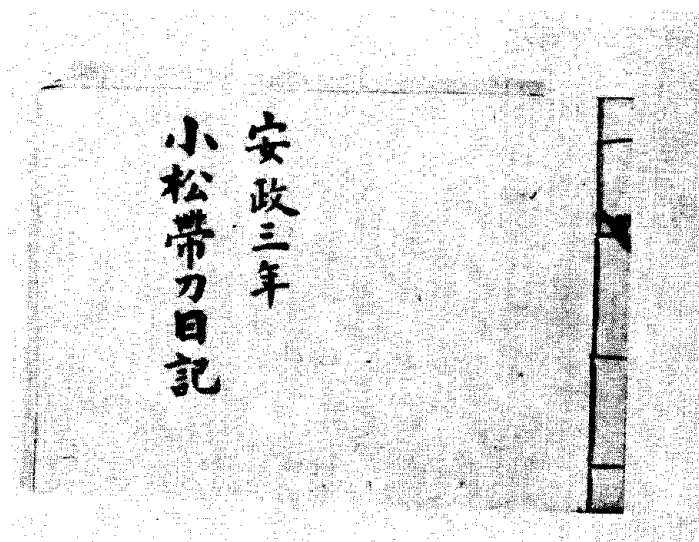 安政三年
小松帶刀日記